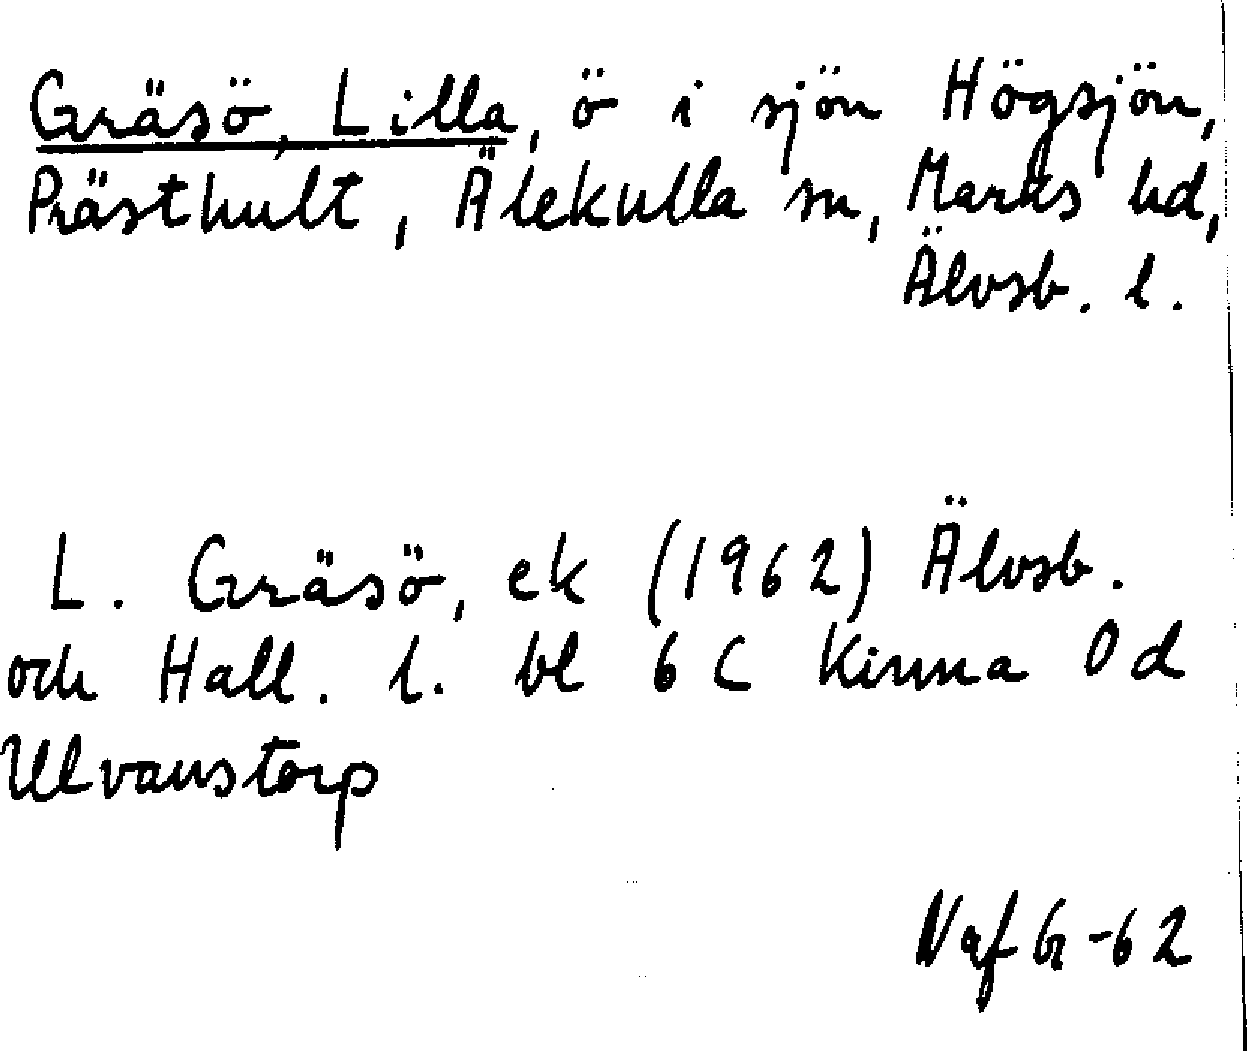 Gräsö, Lilla, ö i sjön Högsjön,
Prästhult, Älekulla sn, Marks hd,
Älvsb. l.
L. Gräsö, ek (1962) Älvsb.
och Hall. l. bl 6 C Kinna 0 d
Ulvanstorp
N af G -62